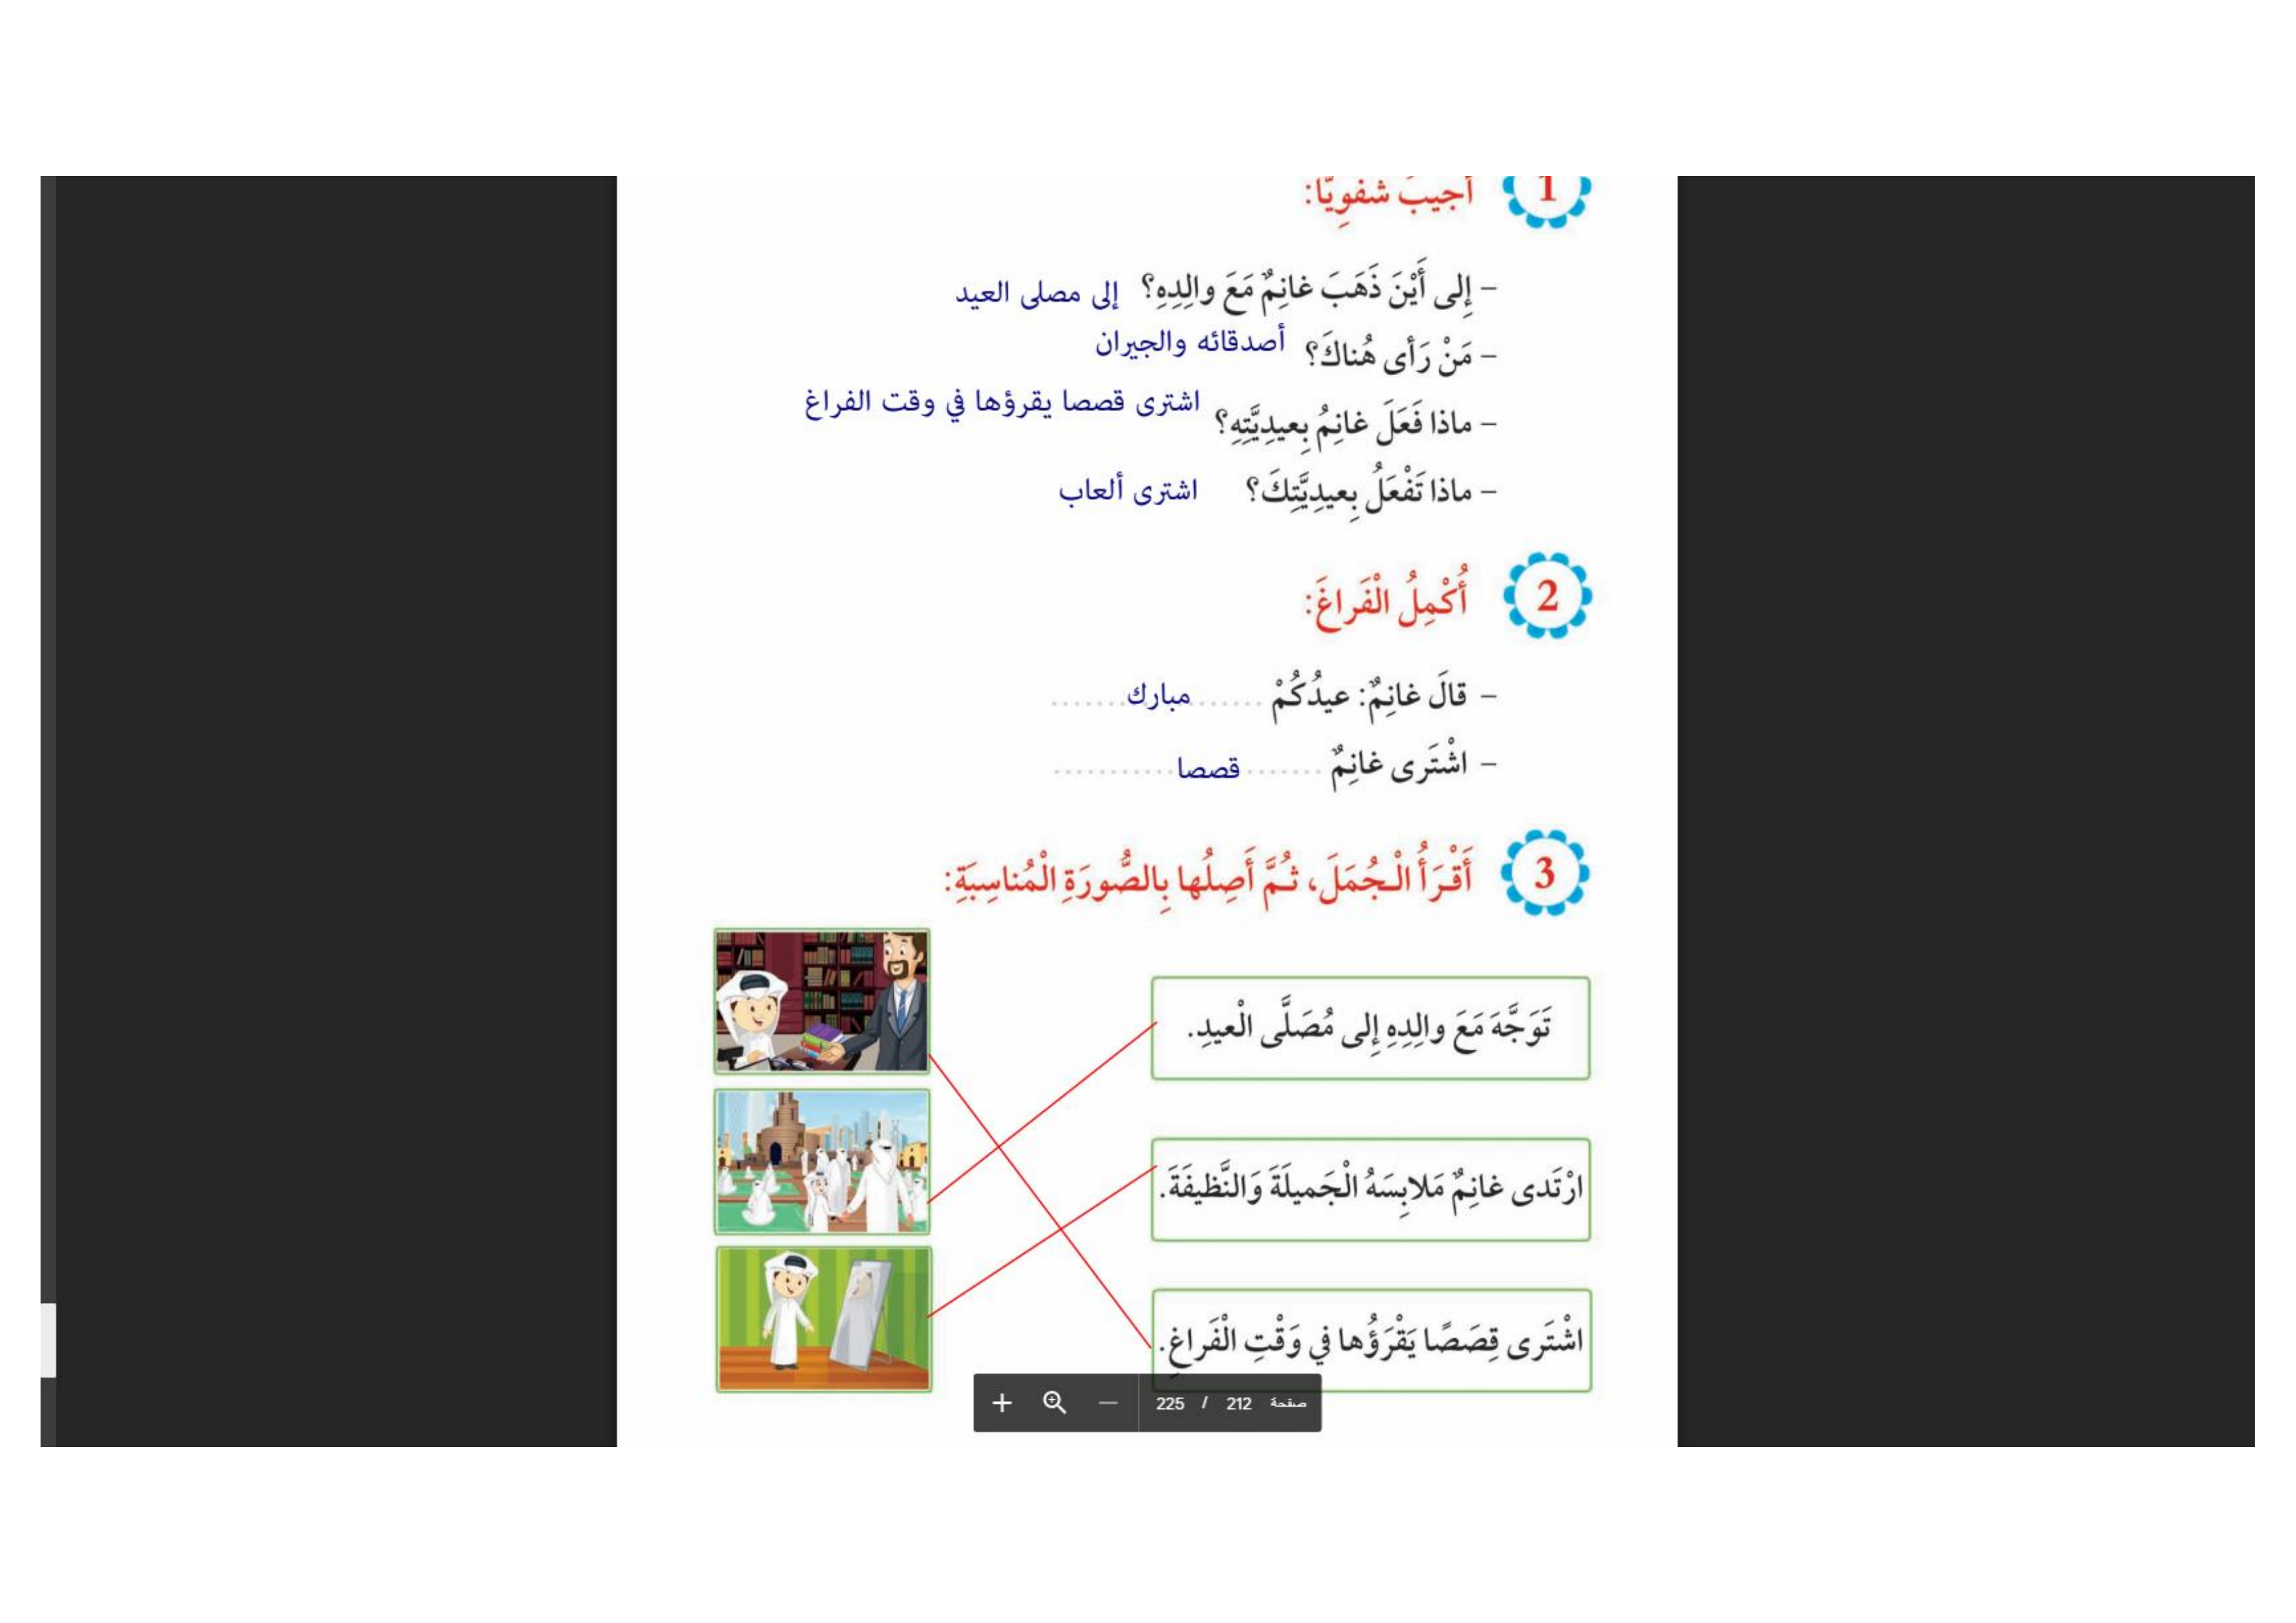 1 أُجيبُ شفوِيًّا:
– إِلى أَيْنَ ذَهَبَ غانِمٌ مَعَ والِدِهِ؟ إلى مصلى العيد
– مَنْ رَأى هُناكَ؟ أصدقائه والجيران
– ماذا فَعَلَ غانِمُ بِعيدِيَّتِهِ؟ اشترى قصصا يقرؤها في وقت الفراغ
– ماذا تَفْعَلُ بِعيدِيَّتِكَ؟ اشترى ألعاب
2 أُكْمِلُ الْفَراغَ:
– قالَ غانِمٌ: عيدُكُمْ ....... مبارك .......
– اشْتَرى غانِمٌ ....... قصصا ...........
3 أَقْرَأُ الْجُمَلَ، ثُمَّ أَصِلُها بِالصُّورَةِ الْمُناسِبَةِ:
تَوَجَّهَ مَعَ والِدِهِ إِلى مُصَلَّى الْعيدِ.
ارْتَدى غانِمٌ مَلابِسَهُ الْجَميلَةَ وَالنَّظيفَةَ.
اشْتَرى قِصَصًا يَقْرَؤُها في وَقْتِ الْفَراغِ.
صفحة 212 / 225